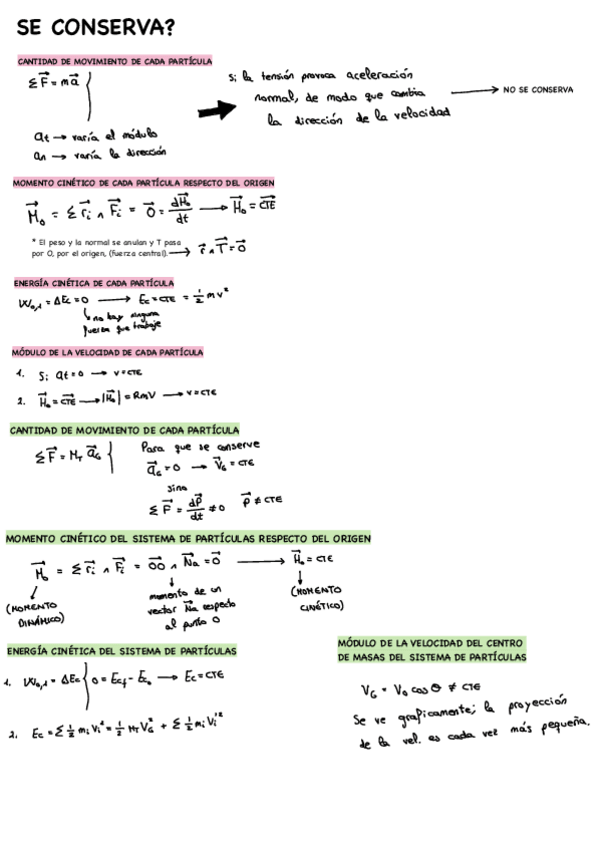 SE CONSERVA?
CANTIDAD DE MOVIMIENTO DE CADA PARTÍCULA
ΣF⃗ = ma⃗
at → varía el módulo
an → varía la dirección
Si la tensión provoca aceleración
normal, de modo que cambia
la dirección de la velocidad
→ NO SE CONSERVA
MOMENTO CINÉTICO DE CADA PARTÍCULA RESPECTO DEL ORIGEN
M⃗₀ = Σ r⃗i ∧ F⃗i = 0⃗ = dH⃗₀/dt → H⃗₀ = CTE
* El peso y la normal se anulan y T pasa
por O, por el origen, (fuerza central). → r⃗ ∧ T⃗ = 0⃗
ENERGÍA CINÉTICA DE CADA PARTÍCULA
W₀,₁ = ΔEc = 0 → Ec = CTE = 1/2 mv²
no hay ninguna
fuerza que trabaje
MÓDULO DE LA VELOCIDAD DE CADA PARTÍCULA
1. Si at = 0 → v = CTE
2. H⃗₀ = CTE → |H⃗₀| = RmV → v = CTE
CANTIDAD DE MOVIMIENTO DE CADA PARTÍCULA
ΣF⃗ = MT a⃗G
Para que se conserve
a⃗G = 0 → V⃗G = CTE
sino
ΣF⃗ = dP⃗/dt ≠ 0 P⃗ ≠ CTE
MOMENTO CINÉTICO DEL SISTEMA DE PARTÍCULAS RESPECTO DEL ORIGEN
M⃗₀ = Σ r⃗i ∧ F⃗i = OO⃗ ∧ N⃗a = 0⃗ → H⃗₀ = CTE
(MOMENTO
DINÁMICO)
momento de un
vector N⃗a respecto
al punto O
(MOMENTO
CINÉTICO)
ENERGÍA CINÉTICA DEL SISTEMA DE PARTÍCULAS
1. W₀,₁ = ΔEc 0 = Ecf - Eco → Ec = CTE
2. Ec = Σ 1/2 mi Vi² = 1/2 MT VG² + Σ 1/2 mi Vi'²
MÓDULO DE LA VELOCIDAD DEL CENTRO
DE MASAS DEL SISTEMA DE PARTÍCULAS
VG = V₀ cos θ ≠ CTE
Se ve graficamente; la proyección
de la vel. es cada vez más pequeña.